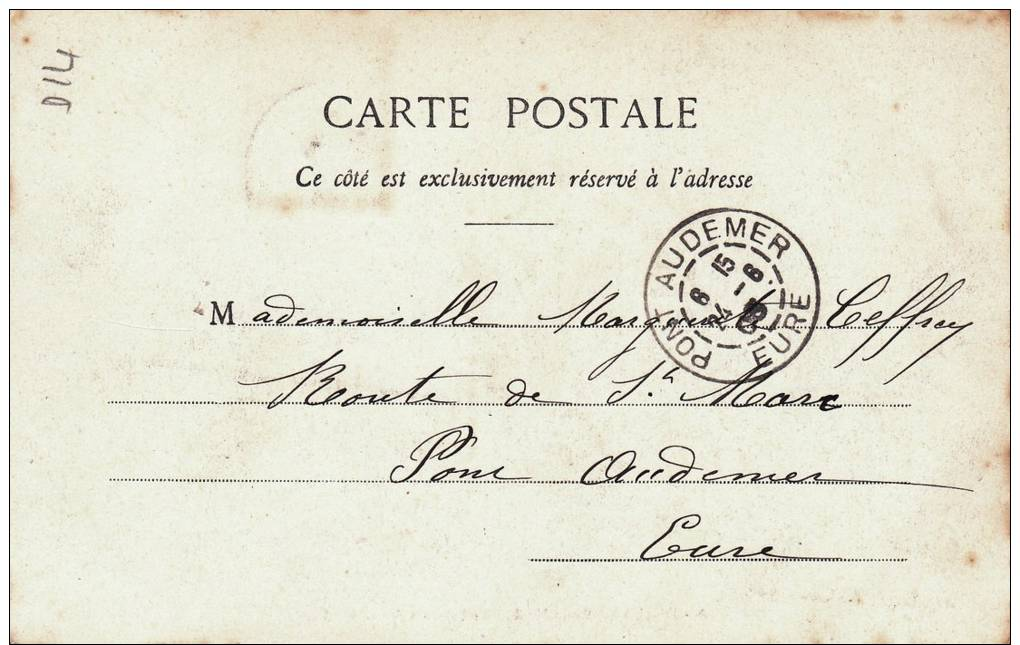 D14
CARTE POSTALE
Ce côté est exclusivement réservé à l'adresse
PONT AUDEMER
15 6
24 6
EURE
Mademoiselle Marguerite
Route de St. Marc
Pont Audemer
Eure